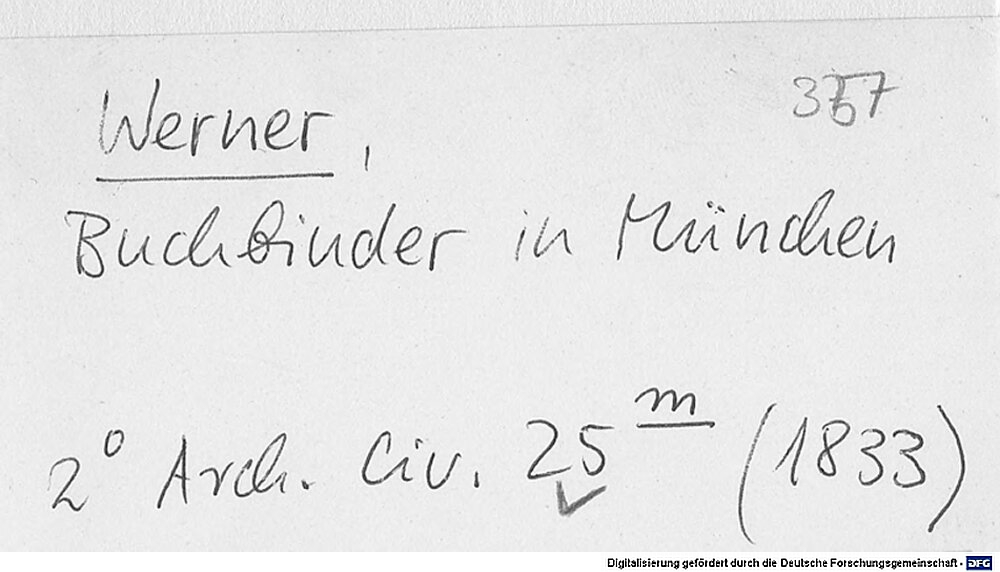 Werner,
Buchbinder in München
2° Arch. Civ. 25 m (1833)
Digitalisierung gefördert durch die Deutsche Forschungsgemeinschaft - DFG